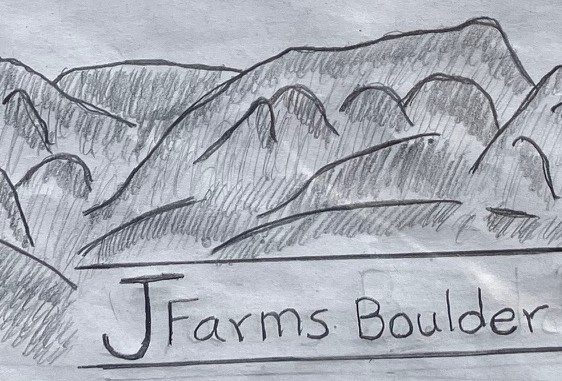 J Farms Boulder